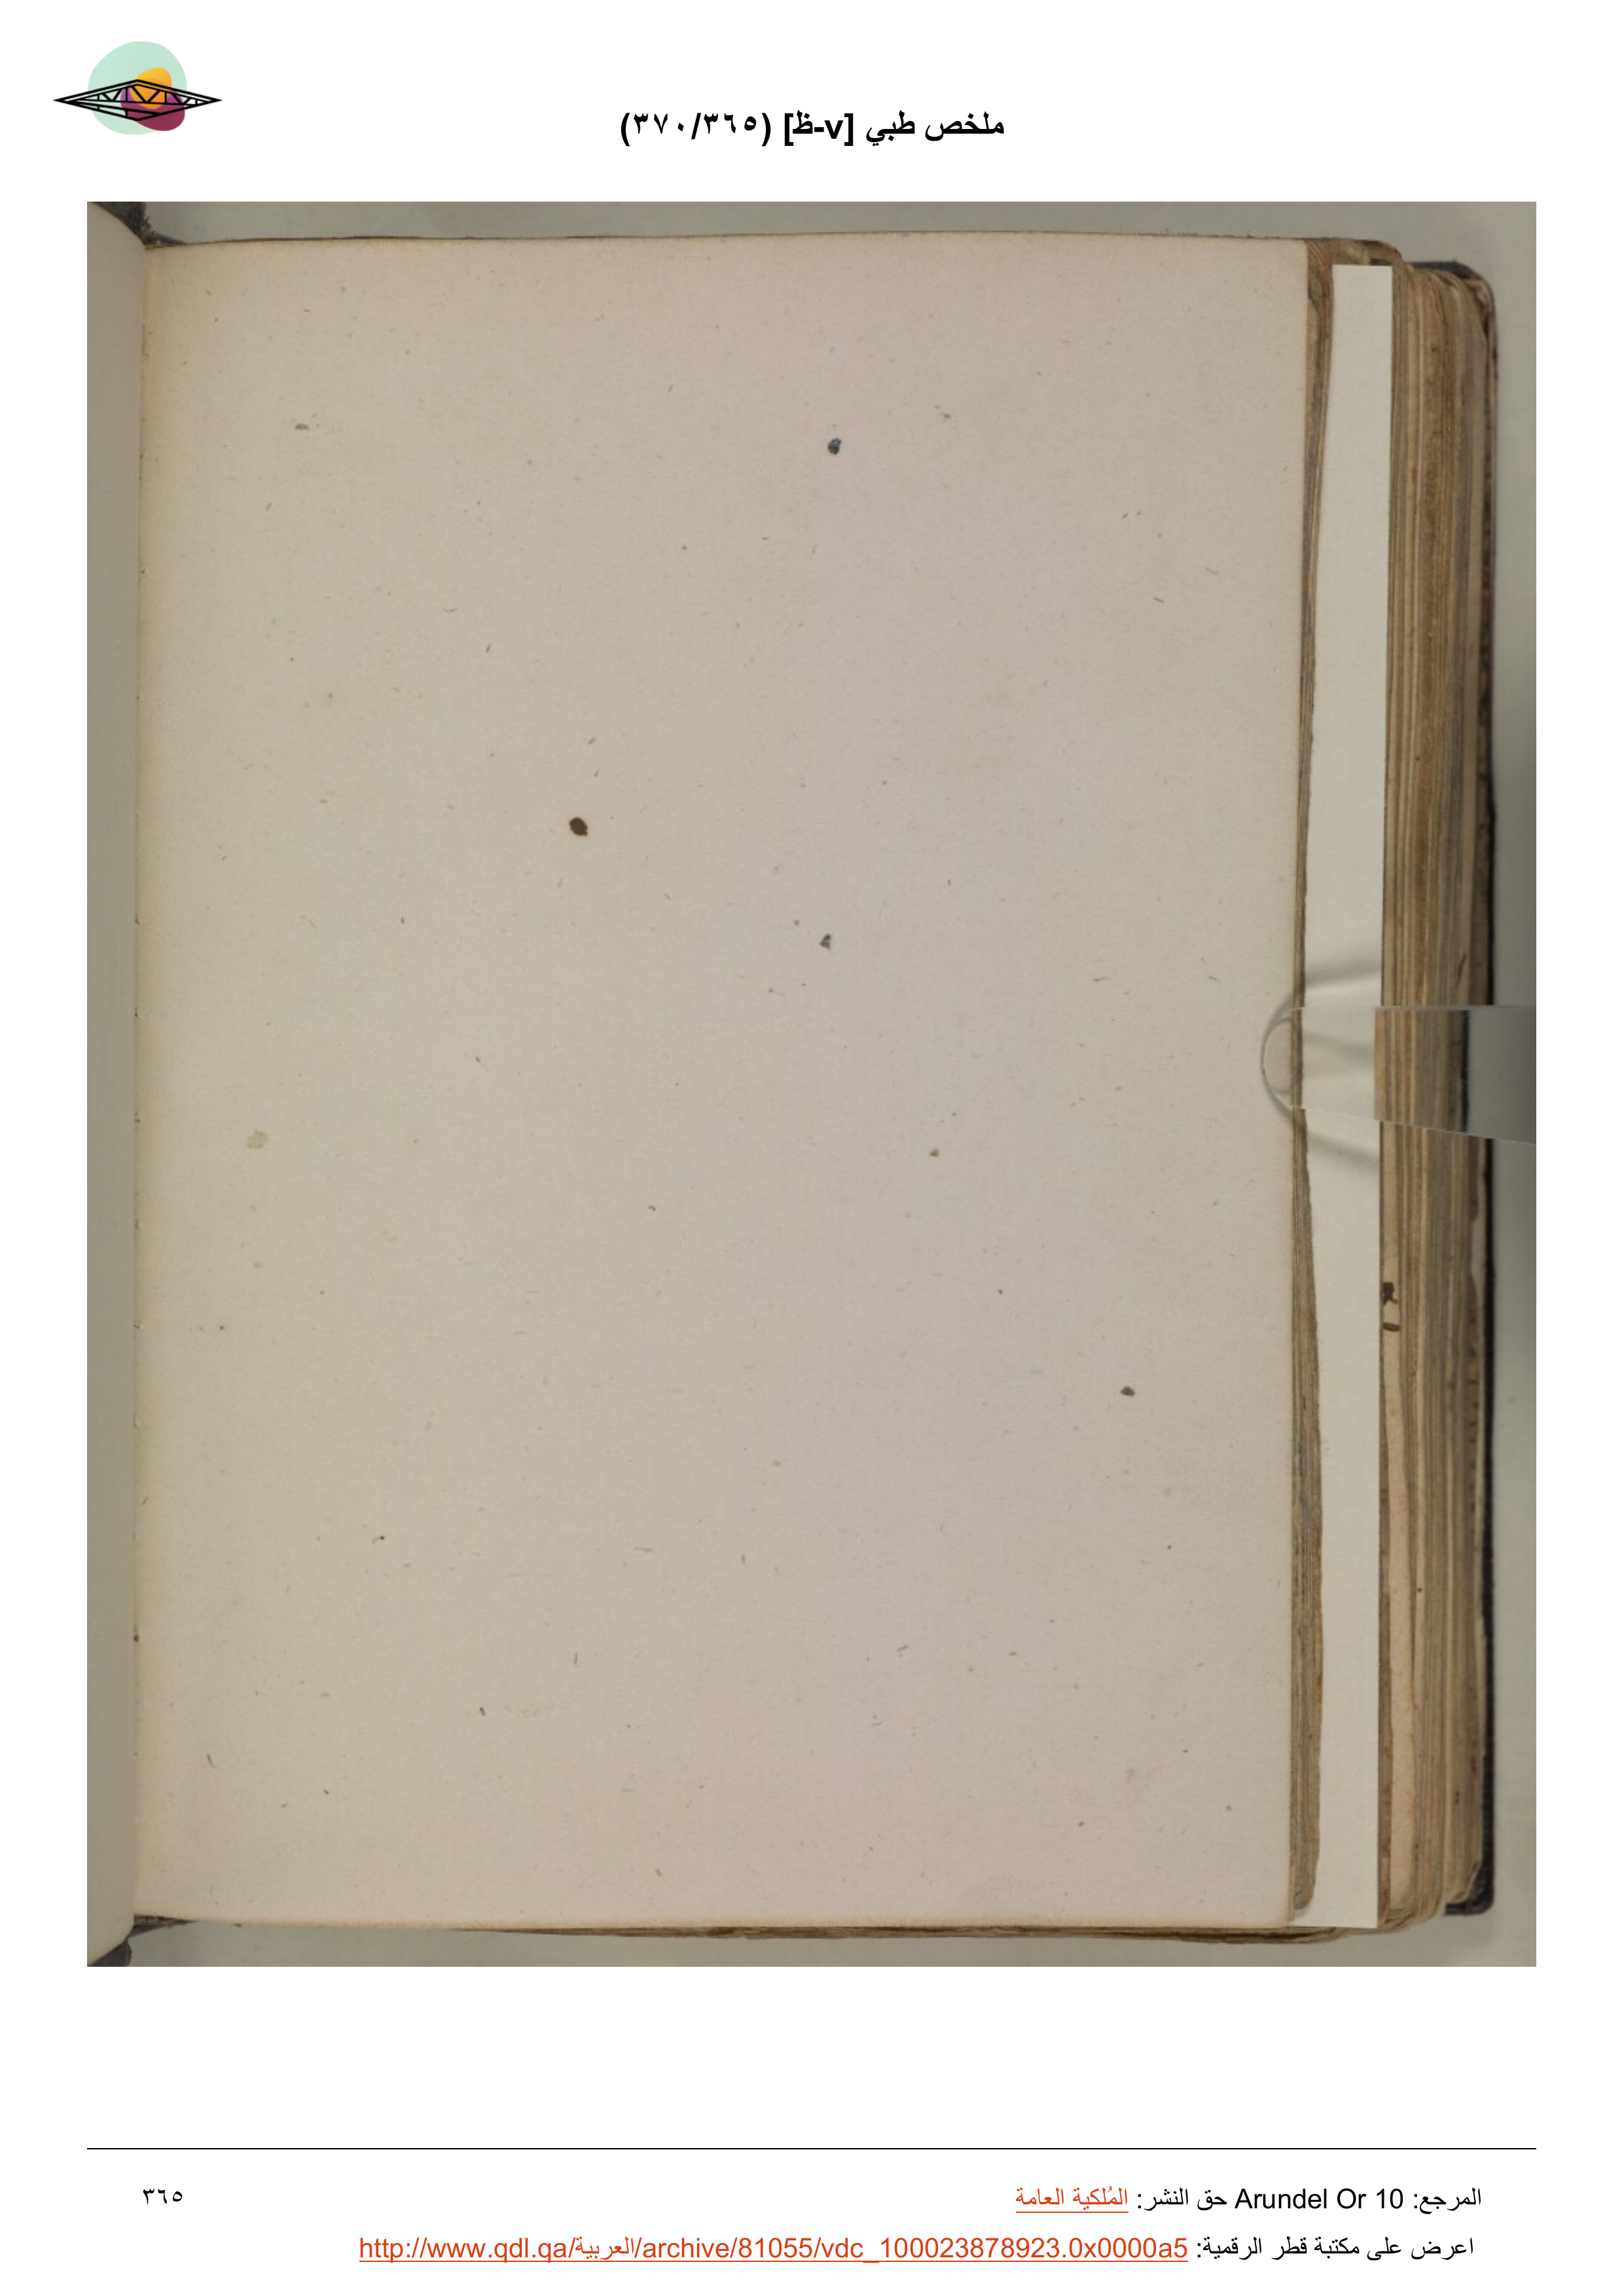 ملخص طبي [v-ظ] (٣٦٥/٣٧٠)
المرجع: Arundel Or 10 حق النشر: المُلكية العامة
٣٦٥
اعرض على مكتبة قطر الرقمية: http://www.qdl.qa/العربية/archive/81055/vdc_100023878923.0x0000a5